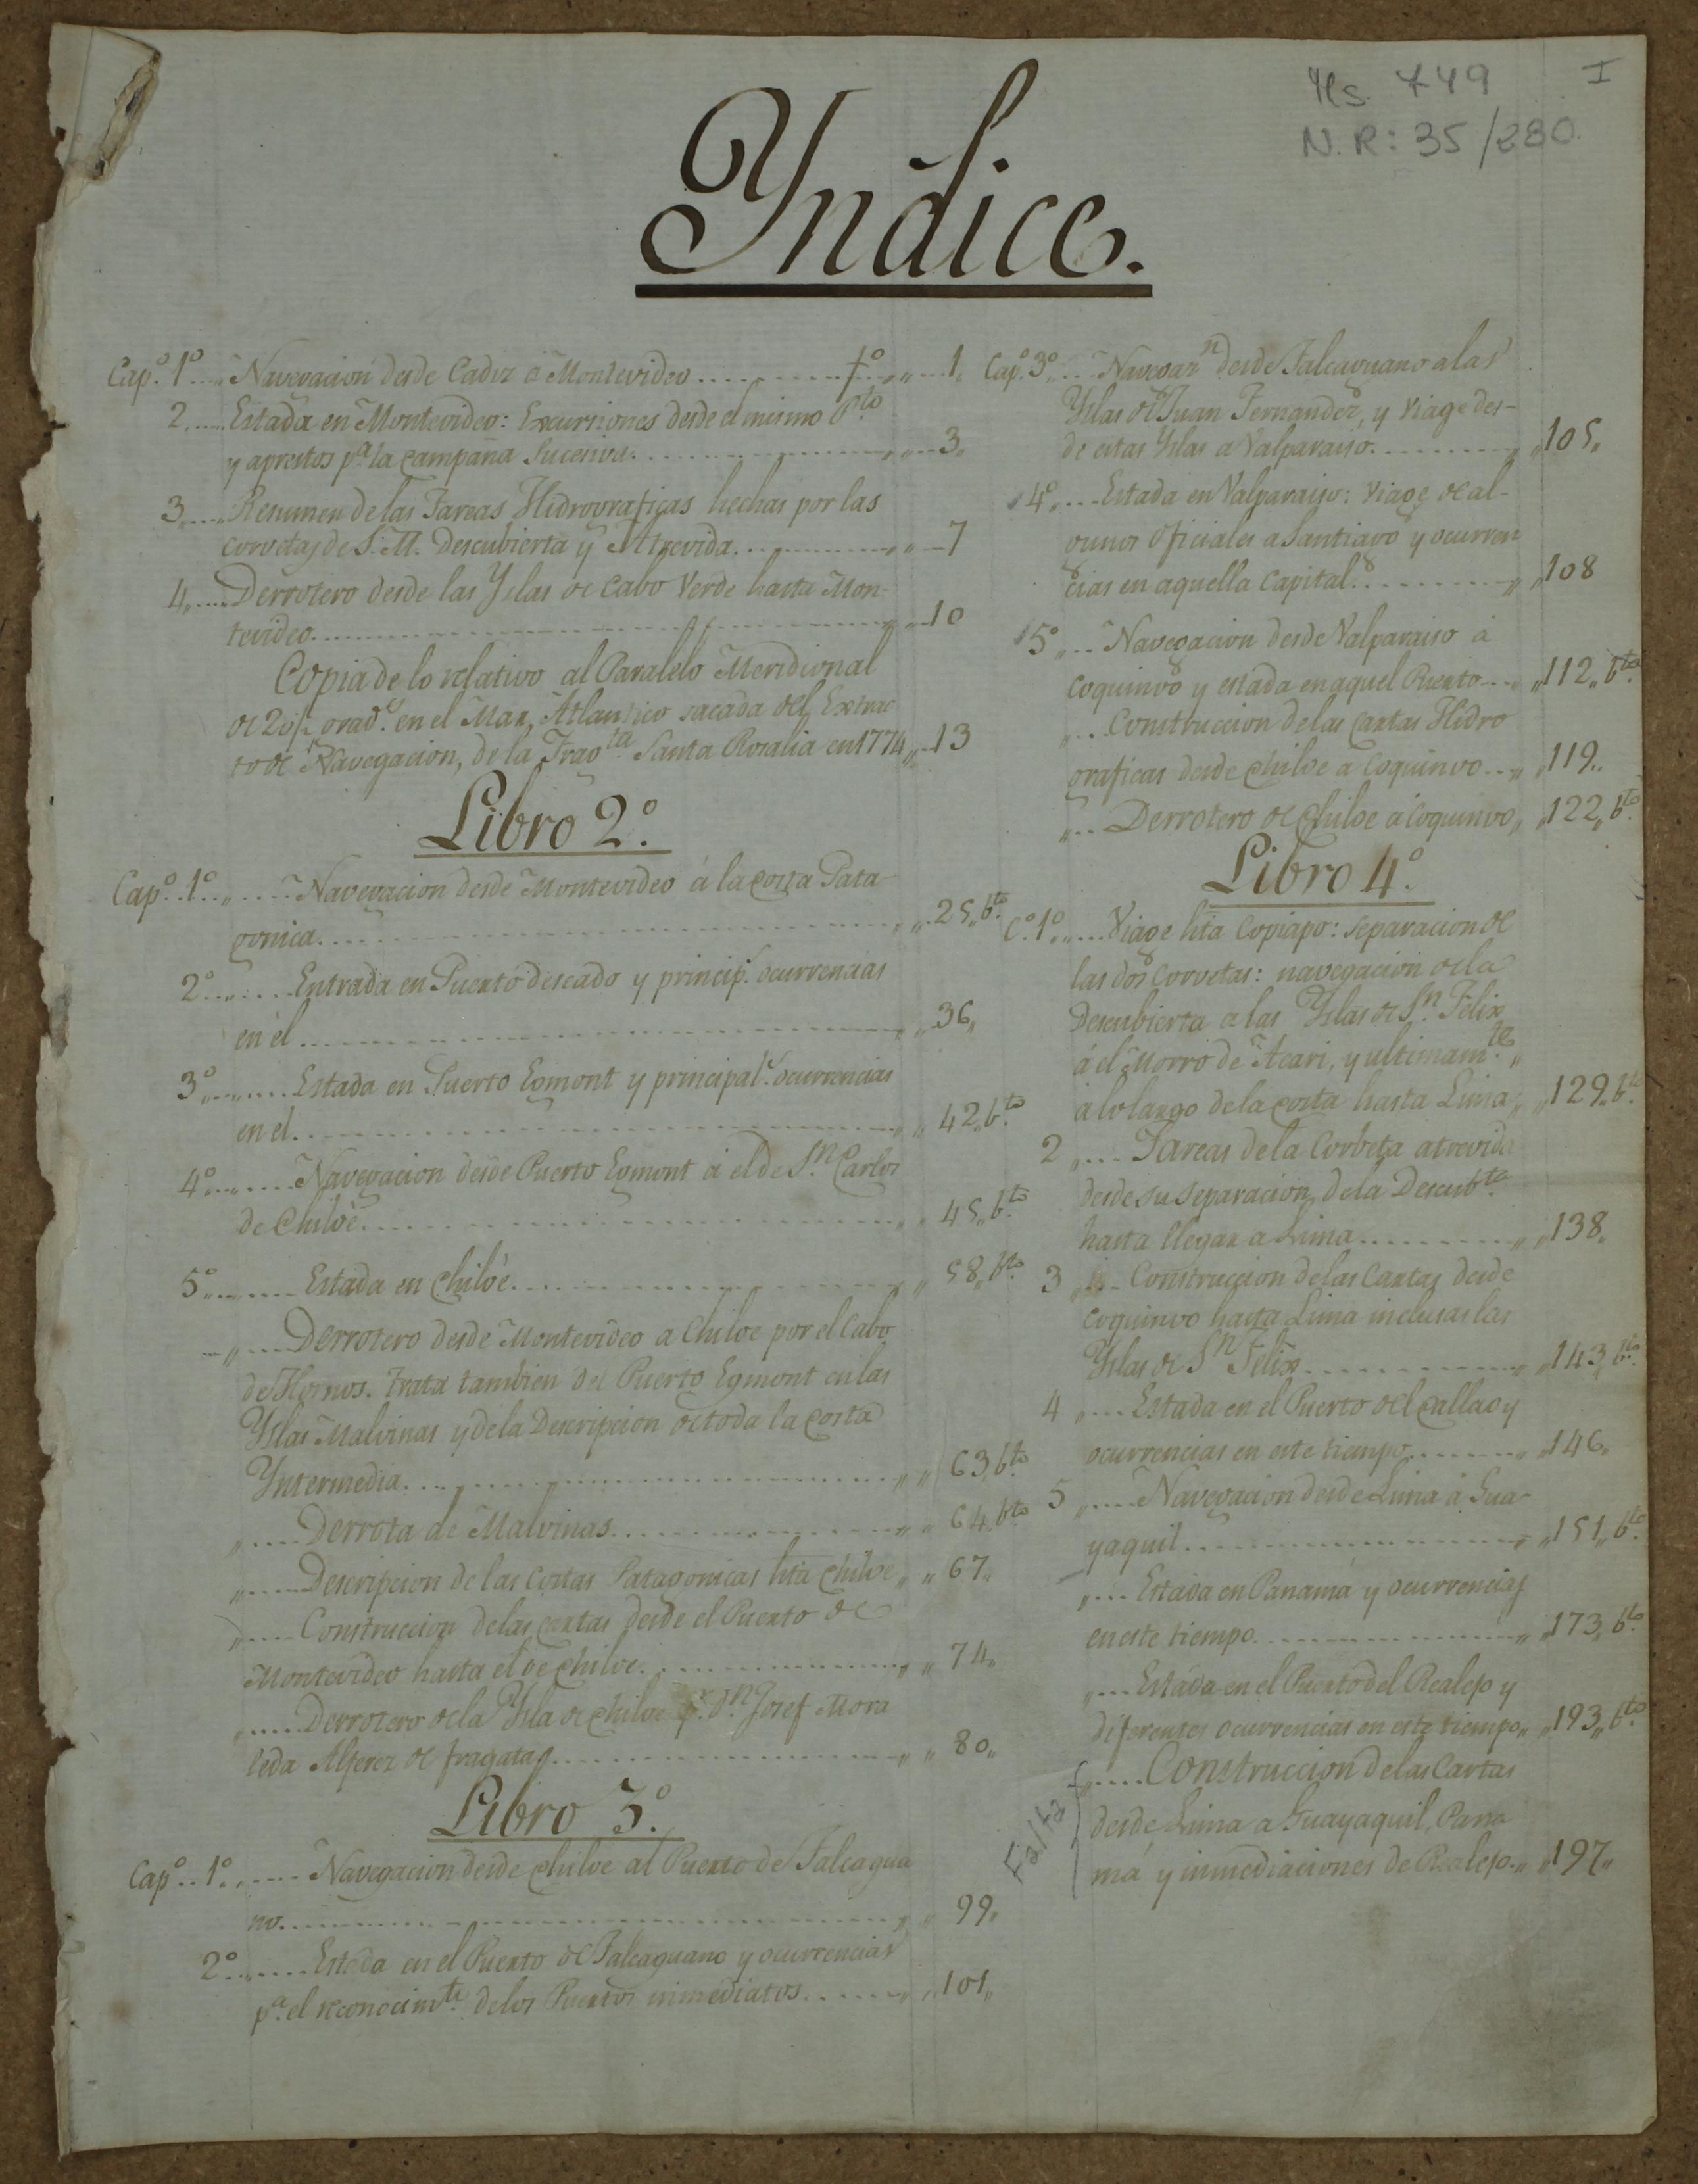 Ms. 749 I
N.R: 35/280.
Yndice.
Cap.º 1º Navegacion desde Cadiz á Montevideo fº 1
2 Estada en Montevideo: Excursiones desde el mismo Pto
y aprestos pª la campaña sucesiva 3
3 Resumen de las Tareas Hidrograficas hechas por las
corvetas de S. M. Descubierta y Atrevida 7
4 Derrotero desde las Yslas de Cabo Verde hasta Mon-
tevideo 10
Copia de lo relativo al Paralelo Meridional
en el Mar Atlantico sacada del Extrac
to de Navegacion, de la Fragta Santa Rosalia en 1774 13
Libro 2º.
Capº 1º Navegacion desde Montevideo á la costa Pata
gonica 25 bto
2º Entrada en Puerto deseado y princip.s ocurrencias
en él 36
3º Estada en Puerto Egmont y principal.s ocurrencias
en el 42 bto
4º Navegacion desde Puerto Egmont á el de Sn Carlos
de Chilóe 45 bto
5º Estada en Chilóe 58 bto
Derrotero desde Montevideo a Chiloe por el Cabo
de Hornos. trata tambien del Puerto Egmont en las
Yslas Malvinas y de la Descripcion de toda la costa
Yntermedia 63 bto
Derrota de Malvinas 64 bto
Descripcion de las costas Patagonicas hta Chiloe 67
Construccion de las cartas desde el Puerto de
Montevideo hasta el de Chiloe 74
Derrotero de la Ysla de Chiloe pr Dn Josef Mora
leda Alferez de fragata 80
Libro 3º.
Capº 1º Navegacion desde Chiloe al Puerto de Talcagua
no 99
2º Estada en el Puerto de Talcaguano y ocurrencias
pª el reconocimto de los Puertos inmediatos 101
Capº 3º Navegazn desde Talcaguano a las
Yslas de Juan Fernandez, y Viage des-
de estas Yslas a Valparaiso 105
4º Estada en Valparaiso: Viage de al-
gunos oficiales a Santiago y ocurren
cias en aquella Capital 108
5º Navegacion desde Valparaiso á
Coquimvo y estada en aquel Puerto 112 bto
Construccion de las cartas Hidro
graficas desde Chiloe a Coquimvo 119
Derrotero de Chiloe á Coquimvo 122 bto
Libro 4º.
Cº 1º Viage hta Copiapo: separacion de
las dos Corvetas: navegacion de la
Descubierta a las Yslas de Sn Felix
á el Morro de Acari, y ultimamte
a lo largo de la costa hasta Lima 129 bto
2 Tareas de la Corbeta atrevida
desde su separacion de la Descubta
hasta llegar a Lima 138
3 Construccion de las Cartas desde
Coquimvo hasta Lima inclusas las
Yslas de Sn Felix 143 bto
4 Estada en el Puerto del Callao y
ocurrencias en este tiempo 146
5 Navegacion desde Lima á Gua-
yaquil 151 bto
Estada en Panamá y ocurrencias
en este tiempo 173 bto
Estada en el Puerto del Realejo y
diferentes ocurrencias en este tiempo 193 bto
Falta
Construccion de las Cartas
desde Lima a Guayaquil, Pana
má y inmediaciones de Realejo 197